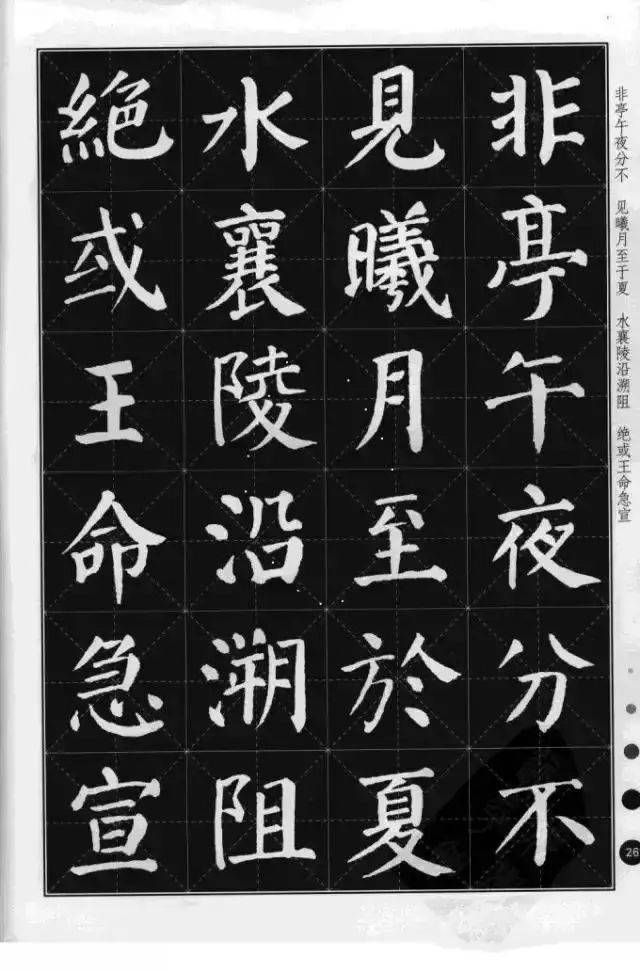 非亭午夜分不
見曦月至於夏
水襄陵沿溯阻
絕或王命急宣
非亭午夜分不 见曦月至于夏 水襄陵沿溯阻 绝或王命急宣
26